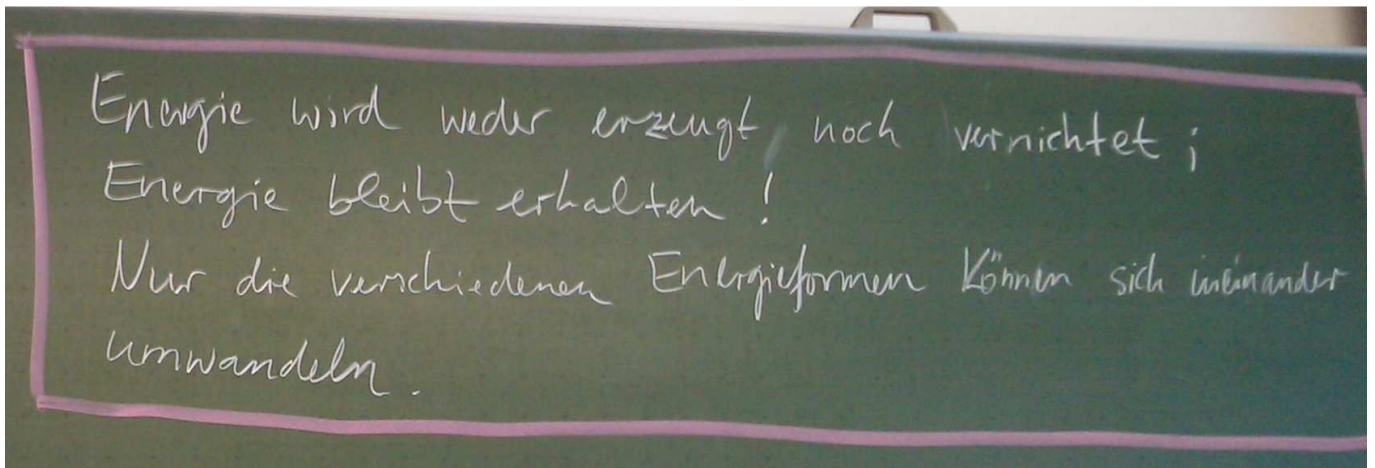 Energie wird weder erzeugt, noch vernichtet;
Energie bleibt erhalten!
Nur die verschiedenen Energieformen können sich ineinander
umwandeln.